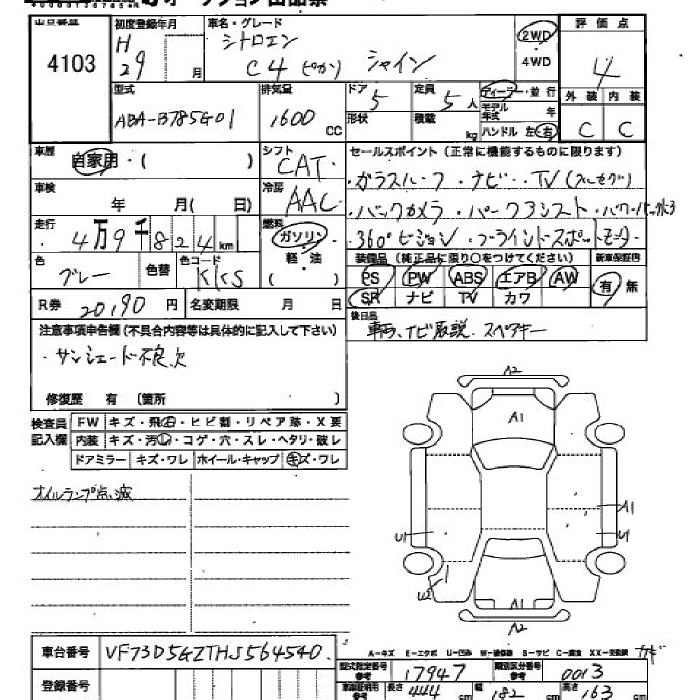 出品番号 4103
初度登録年月 H 29 月
車名・グレード シトロエン C4 ピカソ シャイン
2WD 4WD
評価点 4
外装 C 内装 C
型式 ABA-B785G01
排気量 1600 CC
ドア 5
形状
定員 5 人
積載 kg
ディーラー・並行
モデル年式 年
ハンドル 左 右
車歴 自家用・( )
シフト CAT
車検 年 月( 日)
冷房 AAC
走行 4万9千824km
燃料 ガソリン・軽・油 ( )
色 グレー 色替 色コード KKS
R券 20,190 円 名変期限 月 日
セールスポイント(正常に機能するものに限ります)
・ガラスルーフ ・ナビ・・TV(フルセグ)
・バックカメラ ・パークアシスト ・パワーバックドア
・360°ビジョン ・ブラインドスポットモニター
装備品(純正品に限り○をつけてください) 新車保証書
PS PW ABS エアB AW 有・無
SR ナビ TV カワ
後日品
車両、ナビ取説、スペアキー
注意事項申告欄(不具合内容等は具体的に記入して下さい)
・サンシェード不良、欠
修復歴 有 〔箇所 〕
検査員記入欄
FW キズ・飛石・ヒビ割・リペア跡・X要
内装 キズ・汚れ・コゲ・穴・スレ・ヘタリ・破レ
ドアミラー キズ・ワレ ホイール・キャップ キズ・ワレ
オイルランプ点滅
A2
A1
A1
U1
U1
U2
A1
A2
車台番号 VF73D5GZTHJ564540
登録番号
A-キズ E-エクボ U-凹み W-補修跡 S-サビ C-腐食 XX-交換済
型式指定番号参考 17947 類別区分番号参考 0013
車両証明用参考 長さ 444 cm 幅 182 cm 高さ 163 cm